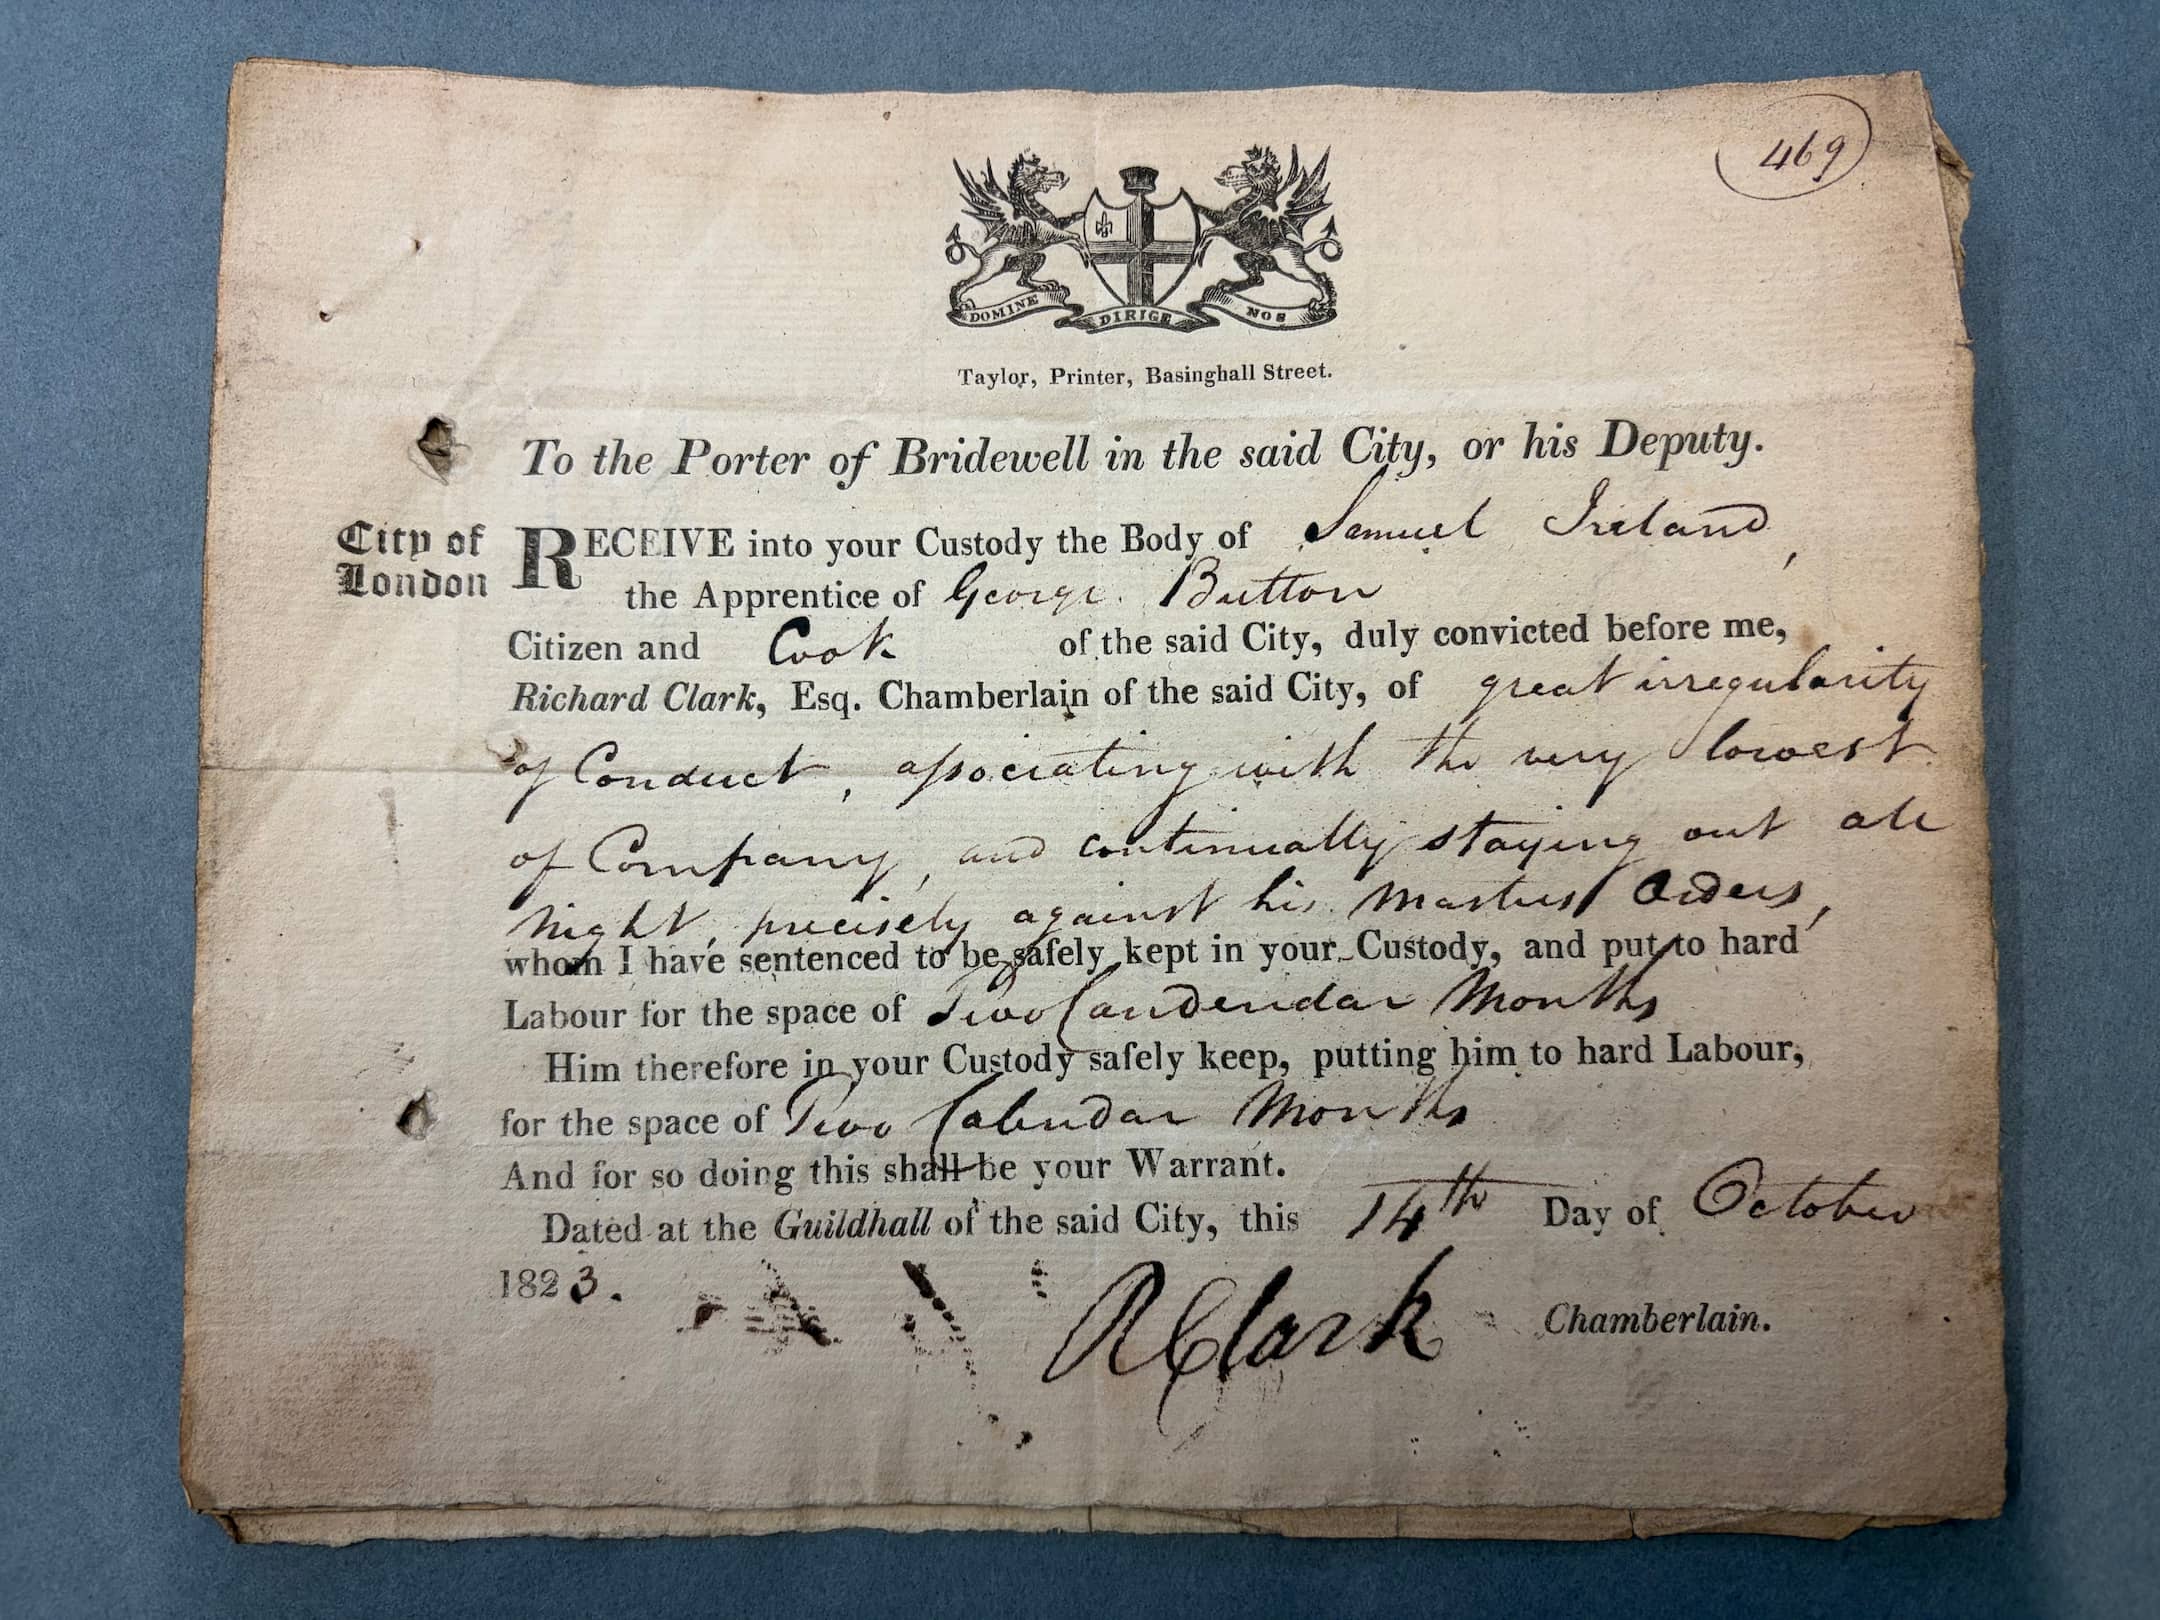 469
DOMINE DIRIGE NOS
Taylor, Printer, Basinghall Street.
To the Porter of Bridewell in the said City, or his Deputy.
City of
London
RECEIVE into your Custody the Body of Samuel Ireland,
the Apprentice of George Button
Citizen and Cook of the said City, duly convicted before me,
Richard Clark, Esq. Chamberlain of the said City, of great irregularity
of Conduct, associating with the very lowest
of Company, and continually staying out all
Night, precisely against his Masters Orders,
whom I have sentenced to be safely kept in your Custody, and put to hard
Labour for the space of Two Candendar Months
Him therefore in your Custody safely keep, putting him to hard Labour,
for the space of Two Calendar Months
And for so doing this shall be your Warrant.
Dated at the Guildhall of the said City, this 14th Day of October
1823.
R Clark Chamberlain.